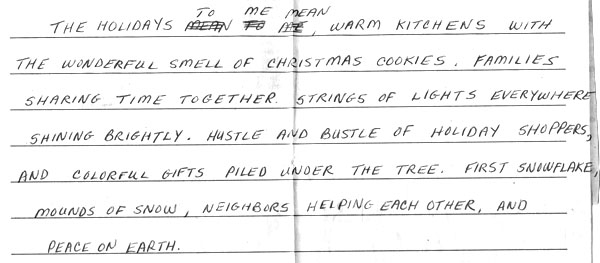 TO ME MEAN
THE HOLIDAYS MEAN TO ME, WARM KITCHENS WITH
THE WONDERFUL SMELL OF CHRISTMAS COOKIES. FAMILIES
SHARING TIME TOGETHER. STRINGS OF LIGHTS EVERYWHERE
SHINING BRIGHTLY. HUSTLE AND BUSTLE OF HOLIDAY SHOPPERS,
AND COLORFUL GIFTS PILED UNDER THE TREE. FIRST SNOWFLAKE,
MOUNDS OF SNOW, NEIGHBORS HELPING EACH OTHER, AND
PEACE ON EARTH.